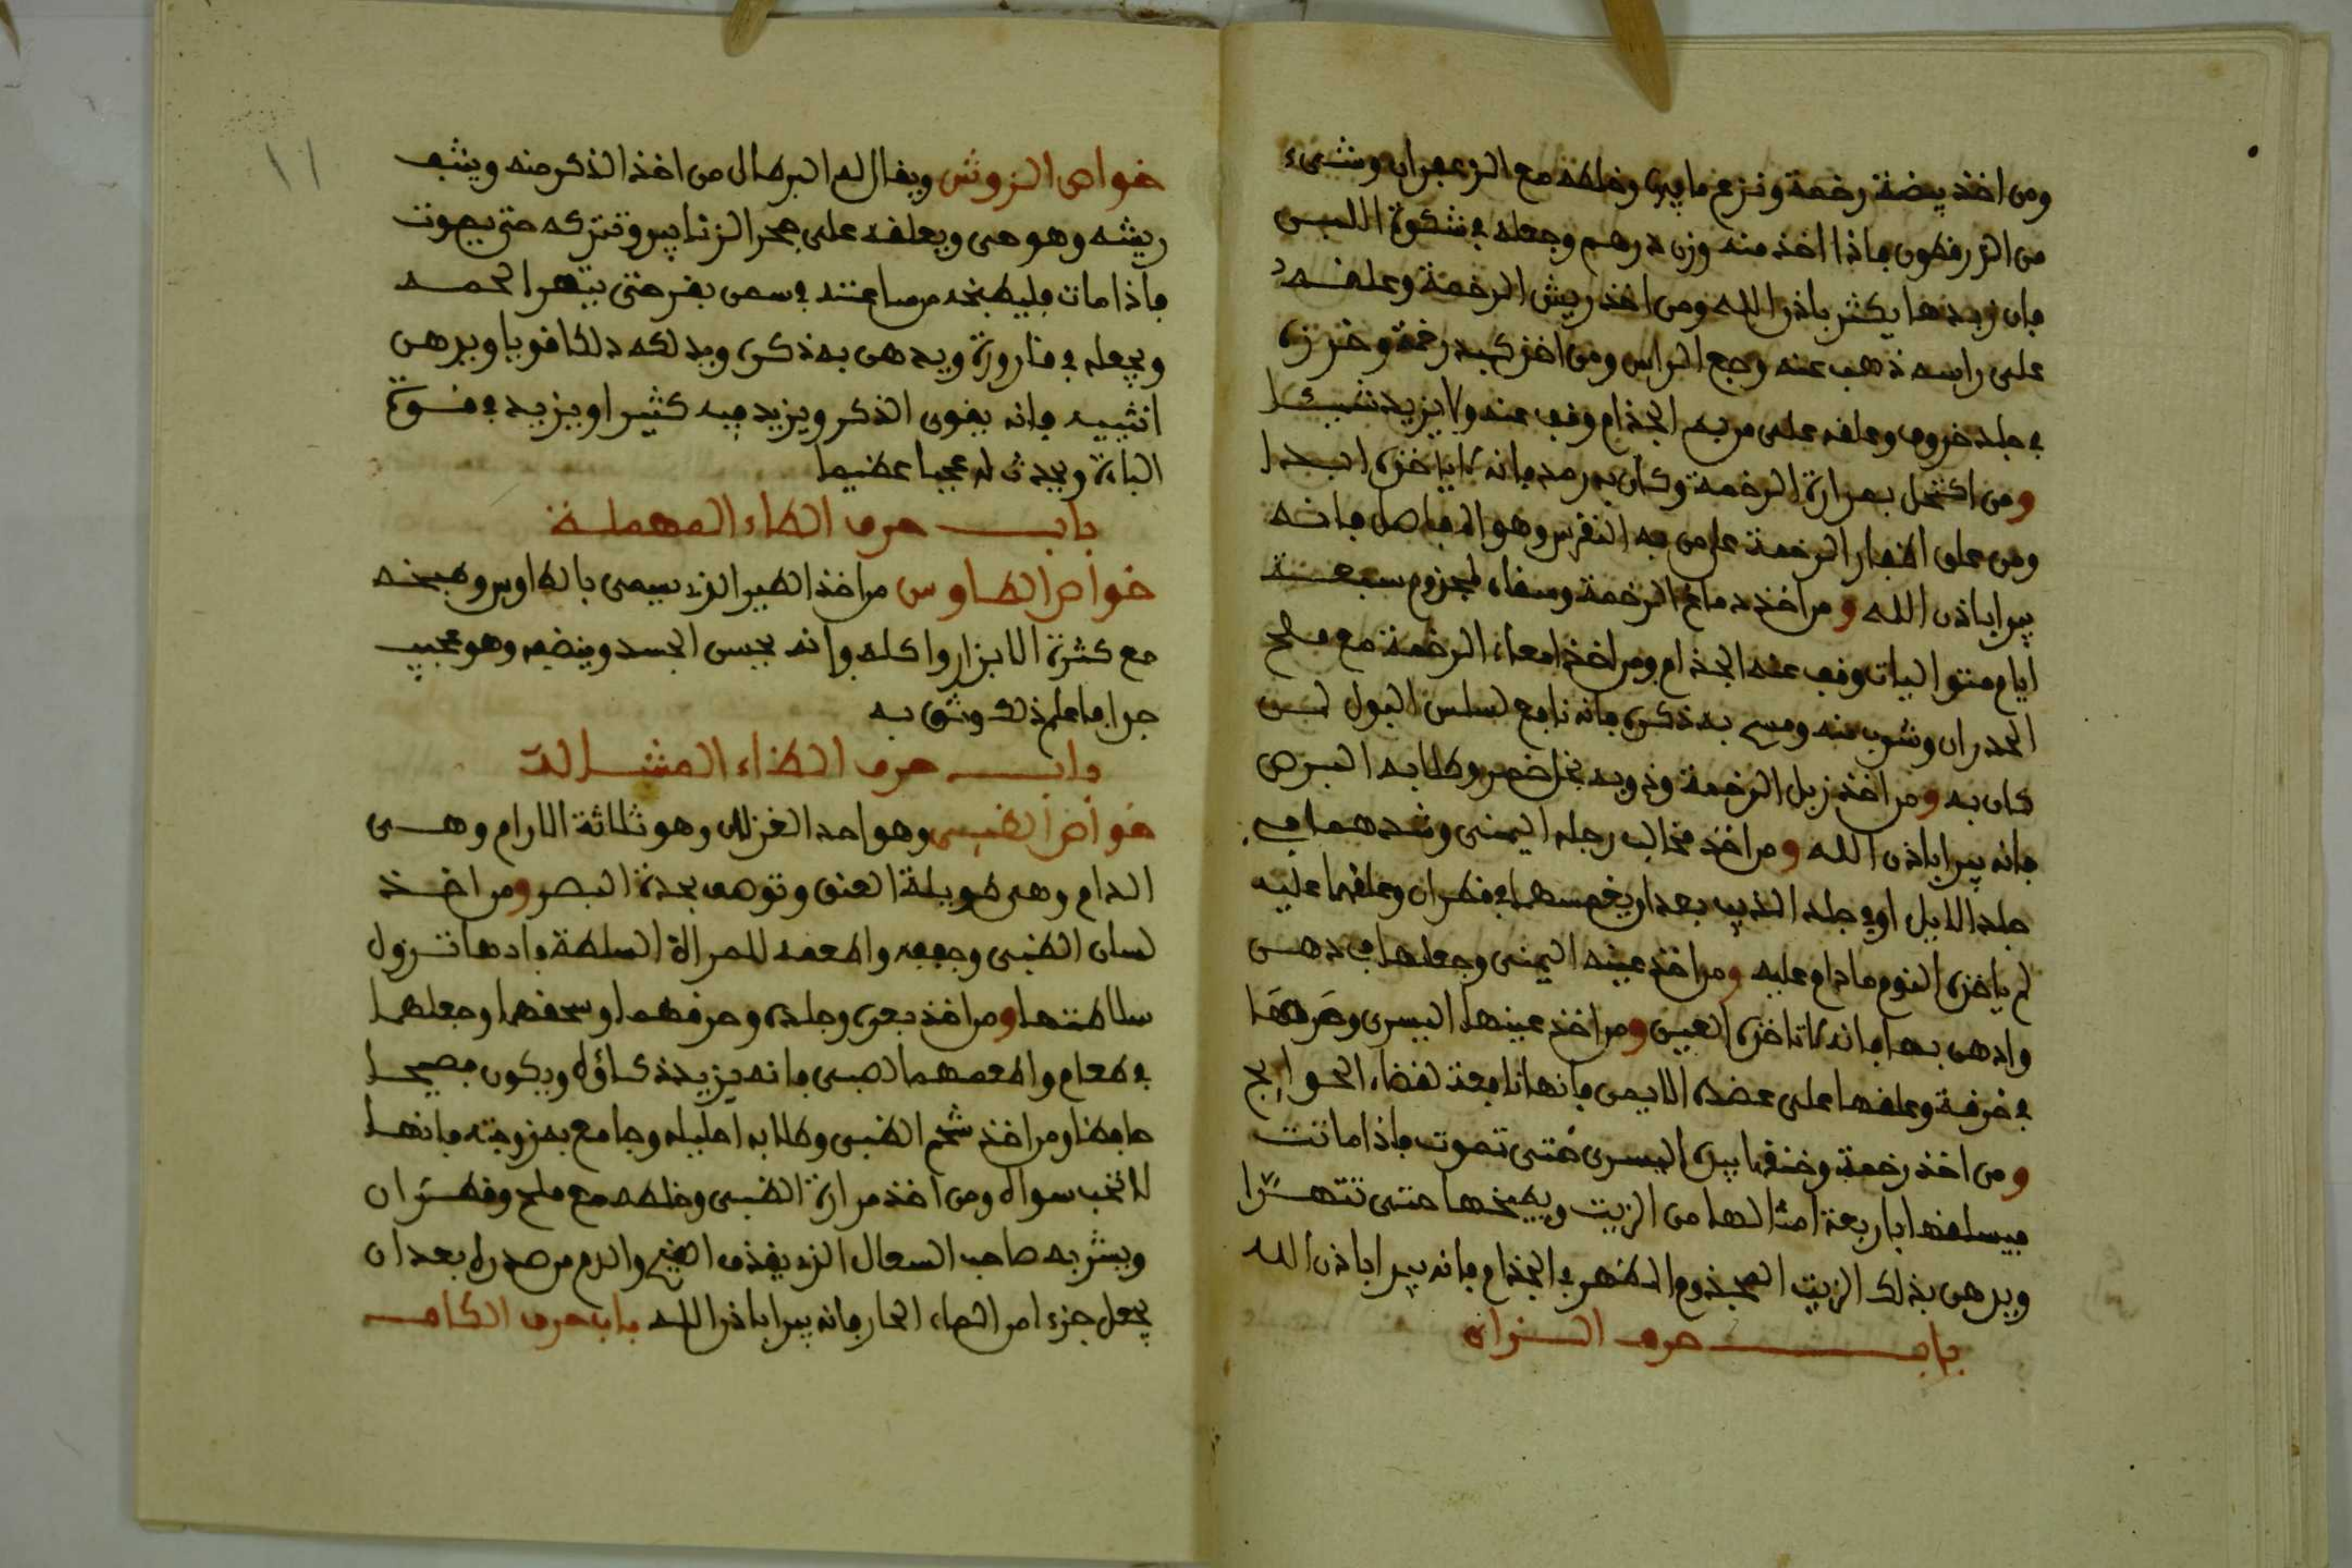 ومن اخذ بيضة رخمة ونزع ما فيها وخلطه مع الزعفران وشيء
من الزرفطون فاذا اخذ منه وزن درهم وجعله في شكوة اللبن
فان زبدها يكثر باذن الله ومن اخذ ريش الرخمة وعلقه
على راسه ذهب عنه وجع الراس ومن اخذ كبد رخمة وخرزه
في جلد خروف وعلقه على من به الجذام وقف عنه ولا يزيد شيئا
ومن اكتحل بمرارة الرخمة وكان به رمد فانه لا ياخذه ابدا
ومن علق اظفار الرخمة على من به النقرس وهو المفاصل فانه
يبرا باذن الله ومن اخذ دماغ الرخمة وسقاه لمجذوم سبعة
ايام متواليات وقف عنه الجذام ومن اخذ امعاء الرخمة مع ملح
الحدران وشرب منه ومسح به ذكره فانه نافع لسلس البول لمن
كان به ومن اخذ زبل الرخمة وذوبه بخل خمر وطلا به البرص
فانه يبرا باذن الله ومن اخذ مخالب رجله اليمنى وشدهما في
جلد الابل او في جلد الذيب بعد ان يغمسهما في قطران وعلقها عليه
لم ياخذه النوم ما دام عليه ومن اخذ عينه اليمنى وجعلها في دهن
وادهن بها فانه لا تاخذه العين ومن اخذ عينها اليسرى وصرها
في خرقة وعلقها على عضده الايمن فانها نافعة لقضاء الحوايج
ومن اخذ رخمة وخنقها بيده اليسرى حتى تموت فاذا ماتت
فيسلقها باربعة امثالها من الزيت ويطبخها حتى تتهرا
ويدهن بذلك الزيت المجذوم الظهر في الجذام فانه يبرا باذن الله
باب حرف الزاي
خواص الزوش ويقال له البرطال من اخذ الذكر منه وينتف
ريشه وهو حي ويعلقه على جحر الزنابير وتتركه حتى يموت
فاذا مات فليطبخه من ساعته في سمن بقر حتى يتهرا لحمه
ويجعله في قارورة ويدهن به ذكره ويدلكه دلكا قويا ويدهن
انثييه فانه يقوي الذكر ويزيد فيه كثيرا ويزيد في قوة
الباءة ويحدث له عجبا عظيما
باب حرف الطاء المهملة
خواص الطاوس من اخذ الطير الذي يسمى بالطاوس وطبخه
مع كثرة الابزار واكله فانه يحبس الجسد وينضفه وهو عجيب
جدا فاعلم ذلك وثق به
باب حرف الظاء المشالة
خواص الظبي وهو احد الغزال وهو ثلاثة الارام وهي
الدام وهي طويلة العنق وتوصف بحدة البصر ومن اخذ
لسان الظبي وجففه واطعمه للمراة السلطة فانها تزول
سلاطتها ومن اخذ بعره وجلده وحرقهما وسحقهما وجعلهما
في طعام واطعمهما لصبي فانه يزيد ذكاؤه ويكون فصيحا
حافظا ومن اخذ شحم الظبي وطلا به احليله وجامع به زوجته فانها
لا تحب سواه ومن اخذ مرارة الظبي وخلطه مع ملح وقطران
ويشربه صاحب السعال الذي يقذف القيح والدم من صدره بعد ان
يجعل جزءا من الماء الحار فانه يبرا باذن الله باب حرف الكاف
١١